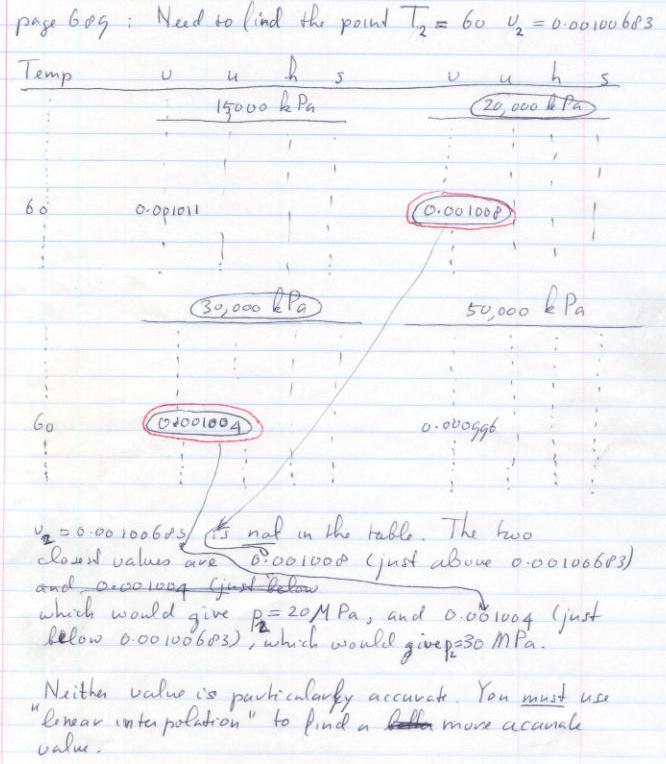 page 689 : Need to find the point T2 = 60 v2 = 0.00100683
Temp v u h s v u h s
15000 kPa 20,000 kPa
60 0.001011 0.001008
30,000 kPa 50,000 kPa
60 0.001004 0.000996
v2 = 0.00100683 is not in the table. The two
closest values are 0.001008 (just above 0.00100683)
and 0.001004 (just below
which would give p2 = 20 MPa, and 0.001004 (just
below 0.00100683), which would give p2=30 MPa.
Neither value is particularly accurate. You must use
"linear interpolation" to find a more accurate
value.